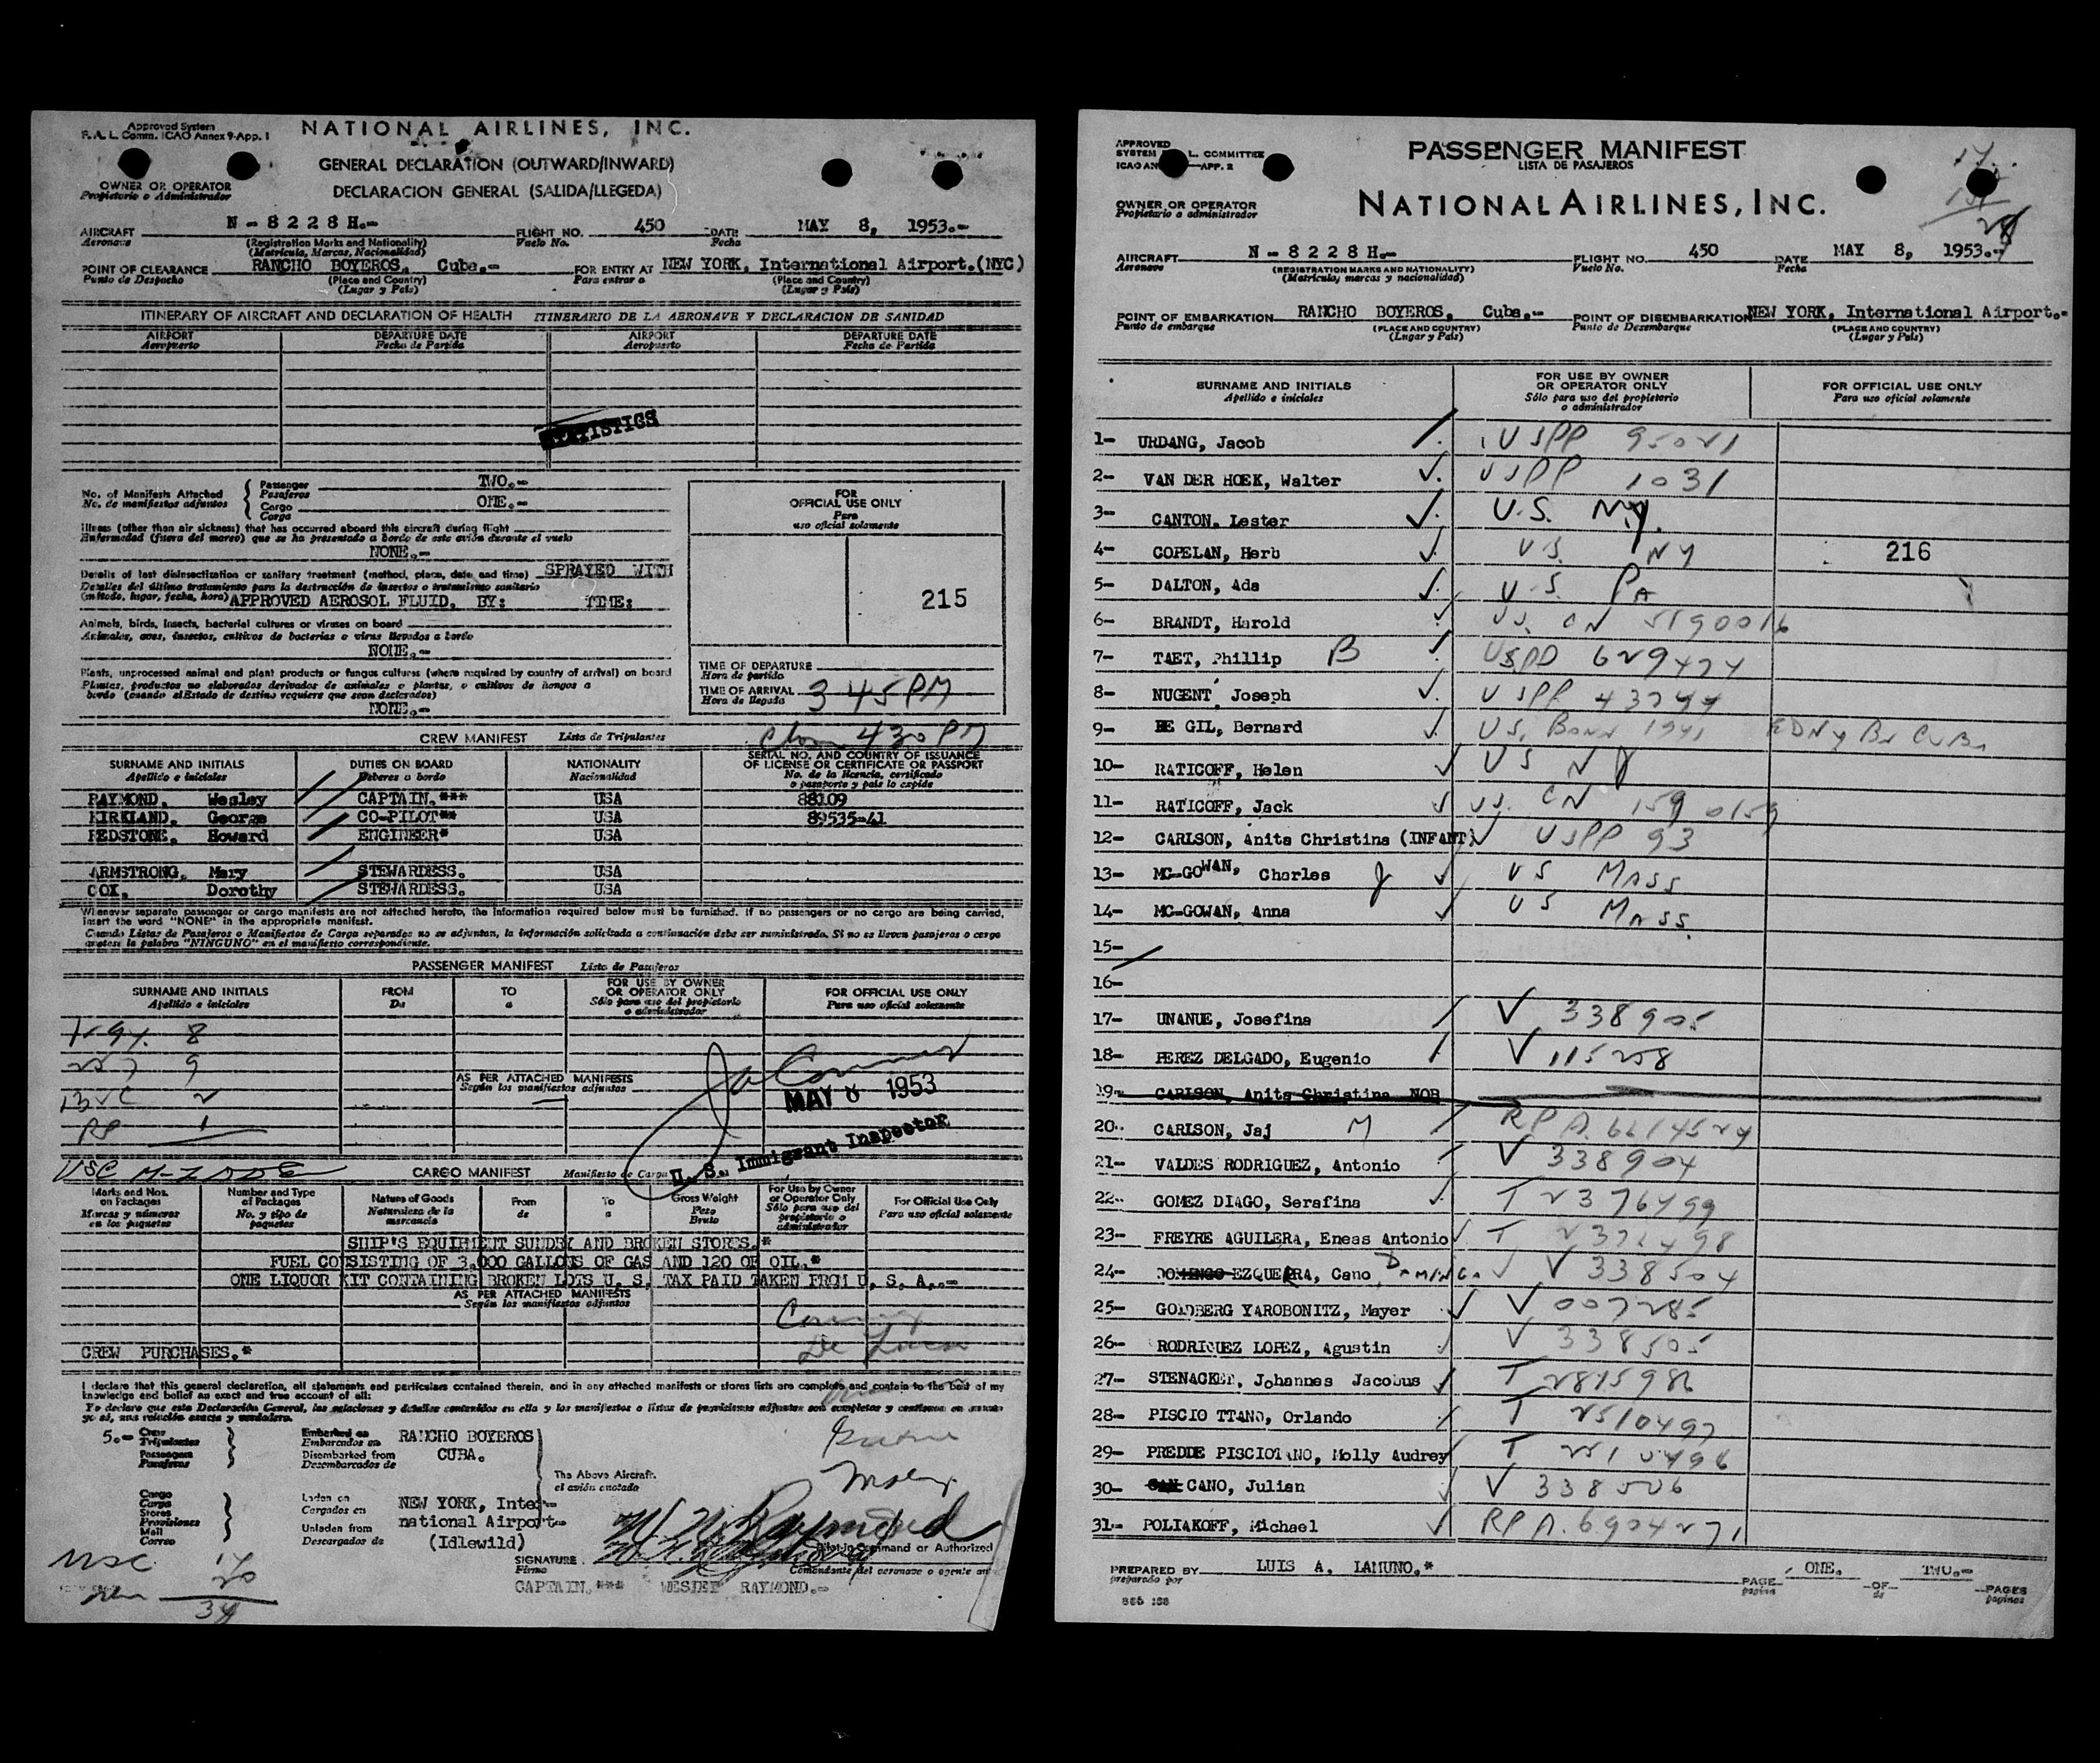 Approved System
F. A. L. Comm. ICAO Annex 9-App. 1
NATIONAL AIRLINES, INC.
GENERAL DECLARATION (OUTWARD/INWARD)
DECLARACION GENERAL (SALIDA/LLEGEDA)
OWNER OR OPERATOR
Propietario o Administrador
AIRCRAFT N - 8 2 2 8 H.- FLIGHT NO. 450 DATE MAY 8, 1953.-
Aeronave (Registration Marks and Nationality) Vuelo No. Fecha
(Matricula, Marcas, Nacionalidad)
POINT OF CLEARANCE RANCHO BOYEROS, Cuba.- FOR ENTRY AT NEW YORK, International Airport.(NYC)
Punto de Despacho (Place and Country) Para entrar a (Place and Country)
(Lugar y País) (Lugar y País)
ITINERARY OF AIRCRAFT AND DECLARATION OF HEALTH ITINERARIO DE LA AERONAVE Y DECLARACION DE SANIDAD
AIRPORT DEPARTURE DATE AIRPORT DEPARTURE DATE
Aeropuerto Fecha de Partida Aeropuerto Fecha de Partida
STATISTICS
No. of Manifests Attached Passenger TWO.-
No. de manifiestos adjuntos Pasajeros
Cargo ONE.-
Carga
Illness (other than air sickness) that has occurred aboard this aircraft during flight
Enfermedad (fuera del mareo) que se ha presentado a bordo de este avión durante el vuelo
NONE.-
Details of last disinsectization or sanitary treatment (method, place, date and time) SPRAYED WITH
Detalles del último tratamiento para la destrucción de insectos o tratamiento sanitario
(método, lugar, fecha, hora) APPROVED AEROSOL FLUID. BY: TIME:
Animals, birds, insects, bacterial cultures or viruses on board
Animales, aves, insectos, cultivos de bacterias o virus llevados a bordo
NONE.-
Plants, unprocessed animal and plant products or fungus cultures (where required by country of arrival) on board
Plantas, productos no elaborados derivados de animales o plantas, o cultivos de hongos a
bordo (cuando el Estado de destino requiere que sean declarados)
NONE.-
FOR
OFFICIAL USE ONLY
Para
uso oficial solamente
215
TIME OF DEPARTURE
Hora de partida
TIME OF ARRIVAL 3 45 PM
Hora de llegada
430 PM
CREW MANIFEST Lista de Tripulantes
SURNAME AND INITIALS DUTIES ON BOARD NATIONALITY SERIAL NO. AND COUNTRY OF ISSUANCE OF LICENSE OR CERTIFICATE OR PASSPORT
Apellido e iniciales Deberes a bordo Nacionalidad No. de la licencia, certificado o pasaporte y país lo expide
RAYMOND, Wesley CAPTAIN.*** USA 88109
KIRKLAND. George CO-PILOT** USA 89535-41
REDSTONE. Howard ENGINEER* USA
ARMSTRONG. Mary STEWARDESS. USA
COX. Dorothy STEWARDESS. USA
Whenever separate passenger or cargo manifests are not attached hereto, the information required below must be furnished. If no passengers or no cargo are being carried,
insert the word "NONE" in the appropriate manifest.
Cuando Listas de Pasajeros o Manifiestos de Carga separados no se adjuntan, la información solicitada a continuación debe ser suministrada. Si no se llevan pasajeros o carga
anótese la palabra "NINGUNO" en el manifiesto correspondiente.
PASSENGER MANIFEST Lista de Pasajeros
SURNAME AND INITIALS FROM TO FOR USE BY OWNER OR OPERATOR ONLY FOR OFFICIAL USE ONLY
Apellido e iniciales De a Sólo para uso del propietario o administrador Para uso oficial solamente
8
9
RP 1
AS PER ATTACHED MANIFESTS
Según los manifiestos adjuntos
MAY 8 1953
U. S. Immigrant Inspector
CARGO MANIFEST Manifiesto de Carga
Marks and Nos. on Packages Number and Type of Packages Nature of Goods From To Gross Weight For Use by Owner or Operator Only For Official Use Only
Marcas y números en los paquetes No. y tipo de paquetes Naturaleza de la mercancía de a Peso Bruto Sólo para uso del propietario o administrador Para uso oficial solamente
SHIP'S EQUIPMENT SUNDRY AND BROKEN STORES.*
FUEL CONSISTING OF 3,000 GALLONS OF GAS AND 120 OF OIL.*
ONE LIQUOR KIT CONTAINING BROKEN LOTS U. S. TAX PAID TAKEN FROM U. S. A..-
AS PER ATTACHED MANIFESTS
Según los manifiestos adjuntos
CREW PURCHASES.*
I declare that this general declaration, all statements and particulars contained therein, and in any attached manifests or stores lists are complete and contain to the best of my
knowledge and belief an exact and true account of all:
Yo declaro que esta Declaración General, las relaciones y detalles contenidos en ella y los manifiestos o listas de provisiones adjuntos son completos y contienen en cuanto
yo sé, una relación exacta y verdadera.
5.- Crew Embarked on RANCHO BOYEROS
Tripulantes Embarcados en
Passengers Disembarked from CUBA.
Pasajeros Desembarcados de
The Above Aircraft.
el avión anotado
Cargo Laden on NEW YORK, Inter-
Carga Cargados en national Airport-
Stores
Provisiones Unladen from (Idlewild)
Mail Descargados de
Correo
Pilot-in Command or Authorized
SIGNATURE
Firma Comandante del aeronave o agente au
CAPTAIN.*** WESLEY RAYMOND.-
USC 14
20
34
APPROVED
SYSTEM L. COMMITTEE
ICAO AN APP. 2
PASSENGER MANIFEST
LISTA DE PASAJEROS
NATIONAL AIRLINES, INC.
OWNER OR OPERATOR
Propietario o administrador
AIRCRAFT N - 8 2 2 8 H.- FLIGHT NO. 450 DATE MAY 8, 1953.-
Aeronave (REGISTRATION MARKS AND NATIONALITY) Vuelo No. Fecha
(Matricula, marcas y nacionalidad)
POINT OF EMBARKATION RANCHO BOYEROS, Cuba.- POINT OF DISEMBARKATION NEW YORK, International Airport.-
Punto de embarque (PLACE AND COUNTRY) Punto de Desembarque (PLACE AND COUNTRY)
(Lugar y País) (Lugar y País)
SURNAME AND INITIALS FOR USE BY OWNER OR OPERATOR ONLY FOR OFFICIAL USE ONLY
Apellido e iniciales Sólo para uso del propietario o administrador Para uso oficial solamente
1- URDANG, Jacob USPP 95021
2- VAN DER HOEK, Walter USPP 1031
3- CANTON, Lester U.S. N.Y.
4- COPELAN, Herb U.S. NY 216
5- DALTON, Ada U.S. PA
6- BRANDT, Harold US. CN 5190016
7- TAET, Phillip B USPP 629474
8- NUGENT, Joseph USPP 43744
9- DE GIL, Bernard US. Born 1941 EDNY Bs CUBA
10- RATICOFF, Helen US NY
11- RATICOFF, Jack US. CN 1590159
12- CARLSON, Anita Christina (INFANT) USPP 93
13- MC-GOWAN, Charles J US MASS
14- MC-GOWAN, Anna US MASS.
15-
16-
17- UNANUE, Josefina V 338905
18- PEREZ DELGADO, Eugenio V 115258
19- CARLSON, Anita Christina NOB
20- CARLSON, Jaj M RPA. 6614524
21- VALDES RODRIGUEZ, Antonio V 338904
22- GOMEZ DIAGO, Serafina T 2376499
23- FREYRE AGUILERA, Eneas Antonio T 2376498
24- DOMINGO EZQUERRA, Cano Domingo V 338504
25- GOLDBERG YAROBONITZ, Mayer V 007285
26- RODRIGUEZ LOPEZ, Agustin V 338505
27- STENACKER, Johannes Jacobus T 2815986
28- PISCIO TTANO, Orlando T 2510497
29- PREDDE PISCIOTANO, Molly Audrey T 2510496
30- CANO, Julian V 338506
31- POLIAKOFF, Michael RPA. 6904271
PREPARED BY LUIS A. LAMUNO.* PAGE ONE. OF TWO.- PAGES
preparado por pagina de paginas